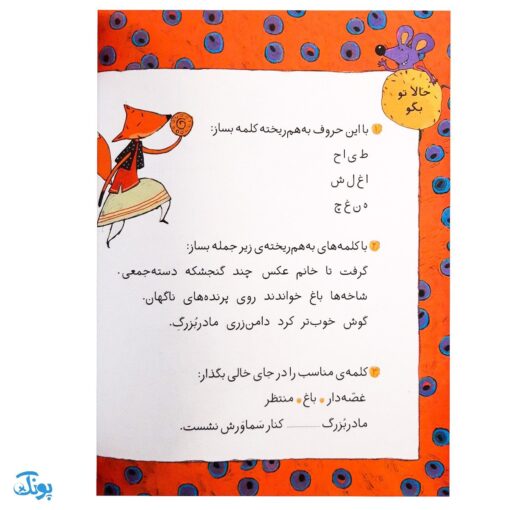 حالا تو
بگو
۱ با این حروف به‌هم‌ریخته کلمه بساز:
ط ی ا ح
ا غ ل ش
ه ن غ چ
۲ با کلمه‌های به‌هم‌ریخته‌ی زیر جمله بساز:
گرفت تا خانم عکس چند گنجشکه دسته‌جمعی.
شاخه‌ها باغ خواندند روی پرنده‌های ناگهان.
گوش خوب‌تر کرد دامن‌زری مادربُزرگِ.
۳ کلمه‌ی مناسب را در جای خالی بگذار:
غصّه‌دار * باغ * منتظر
مادربُزرگ ........ کنار سَماوَرش نشست.
پونک